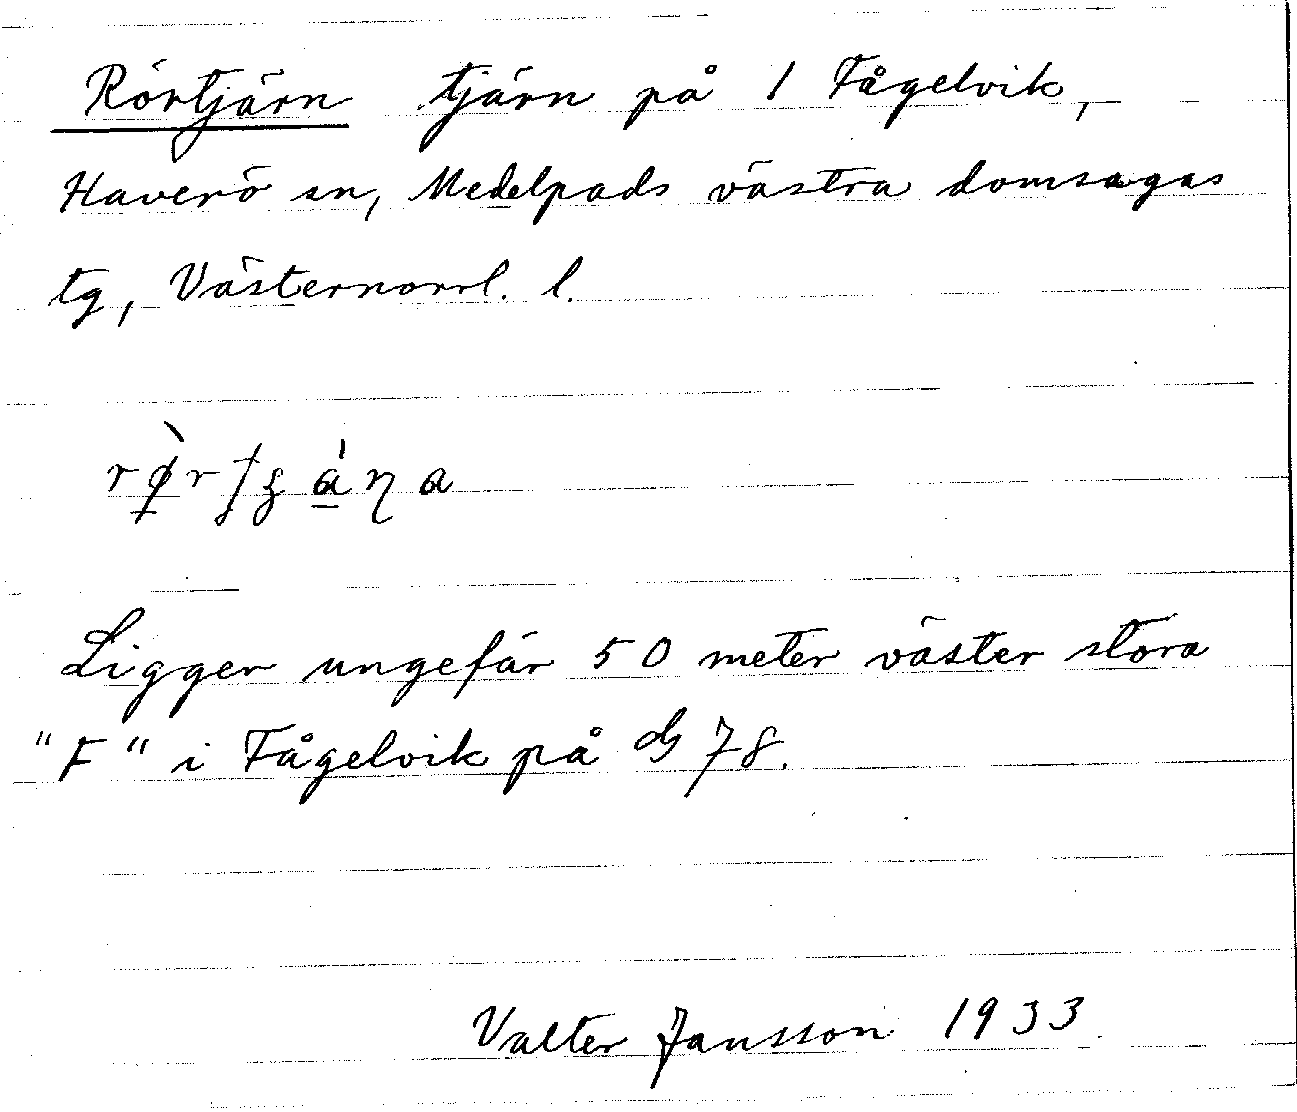 Rörtjärn tjärn på 1 Fågelvik,
Haverö sn, Medelpads västra domsagas
tg, Västernorrl. l.
Ligger ungefär 50 meter väster stora
"F" i Fågelvik på G 78.
Valter Jansson 1933